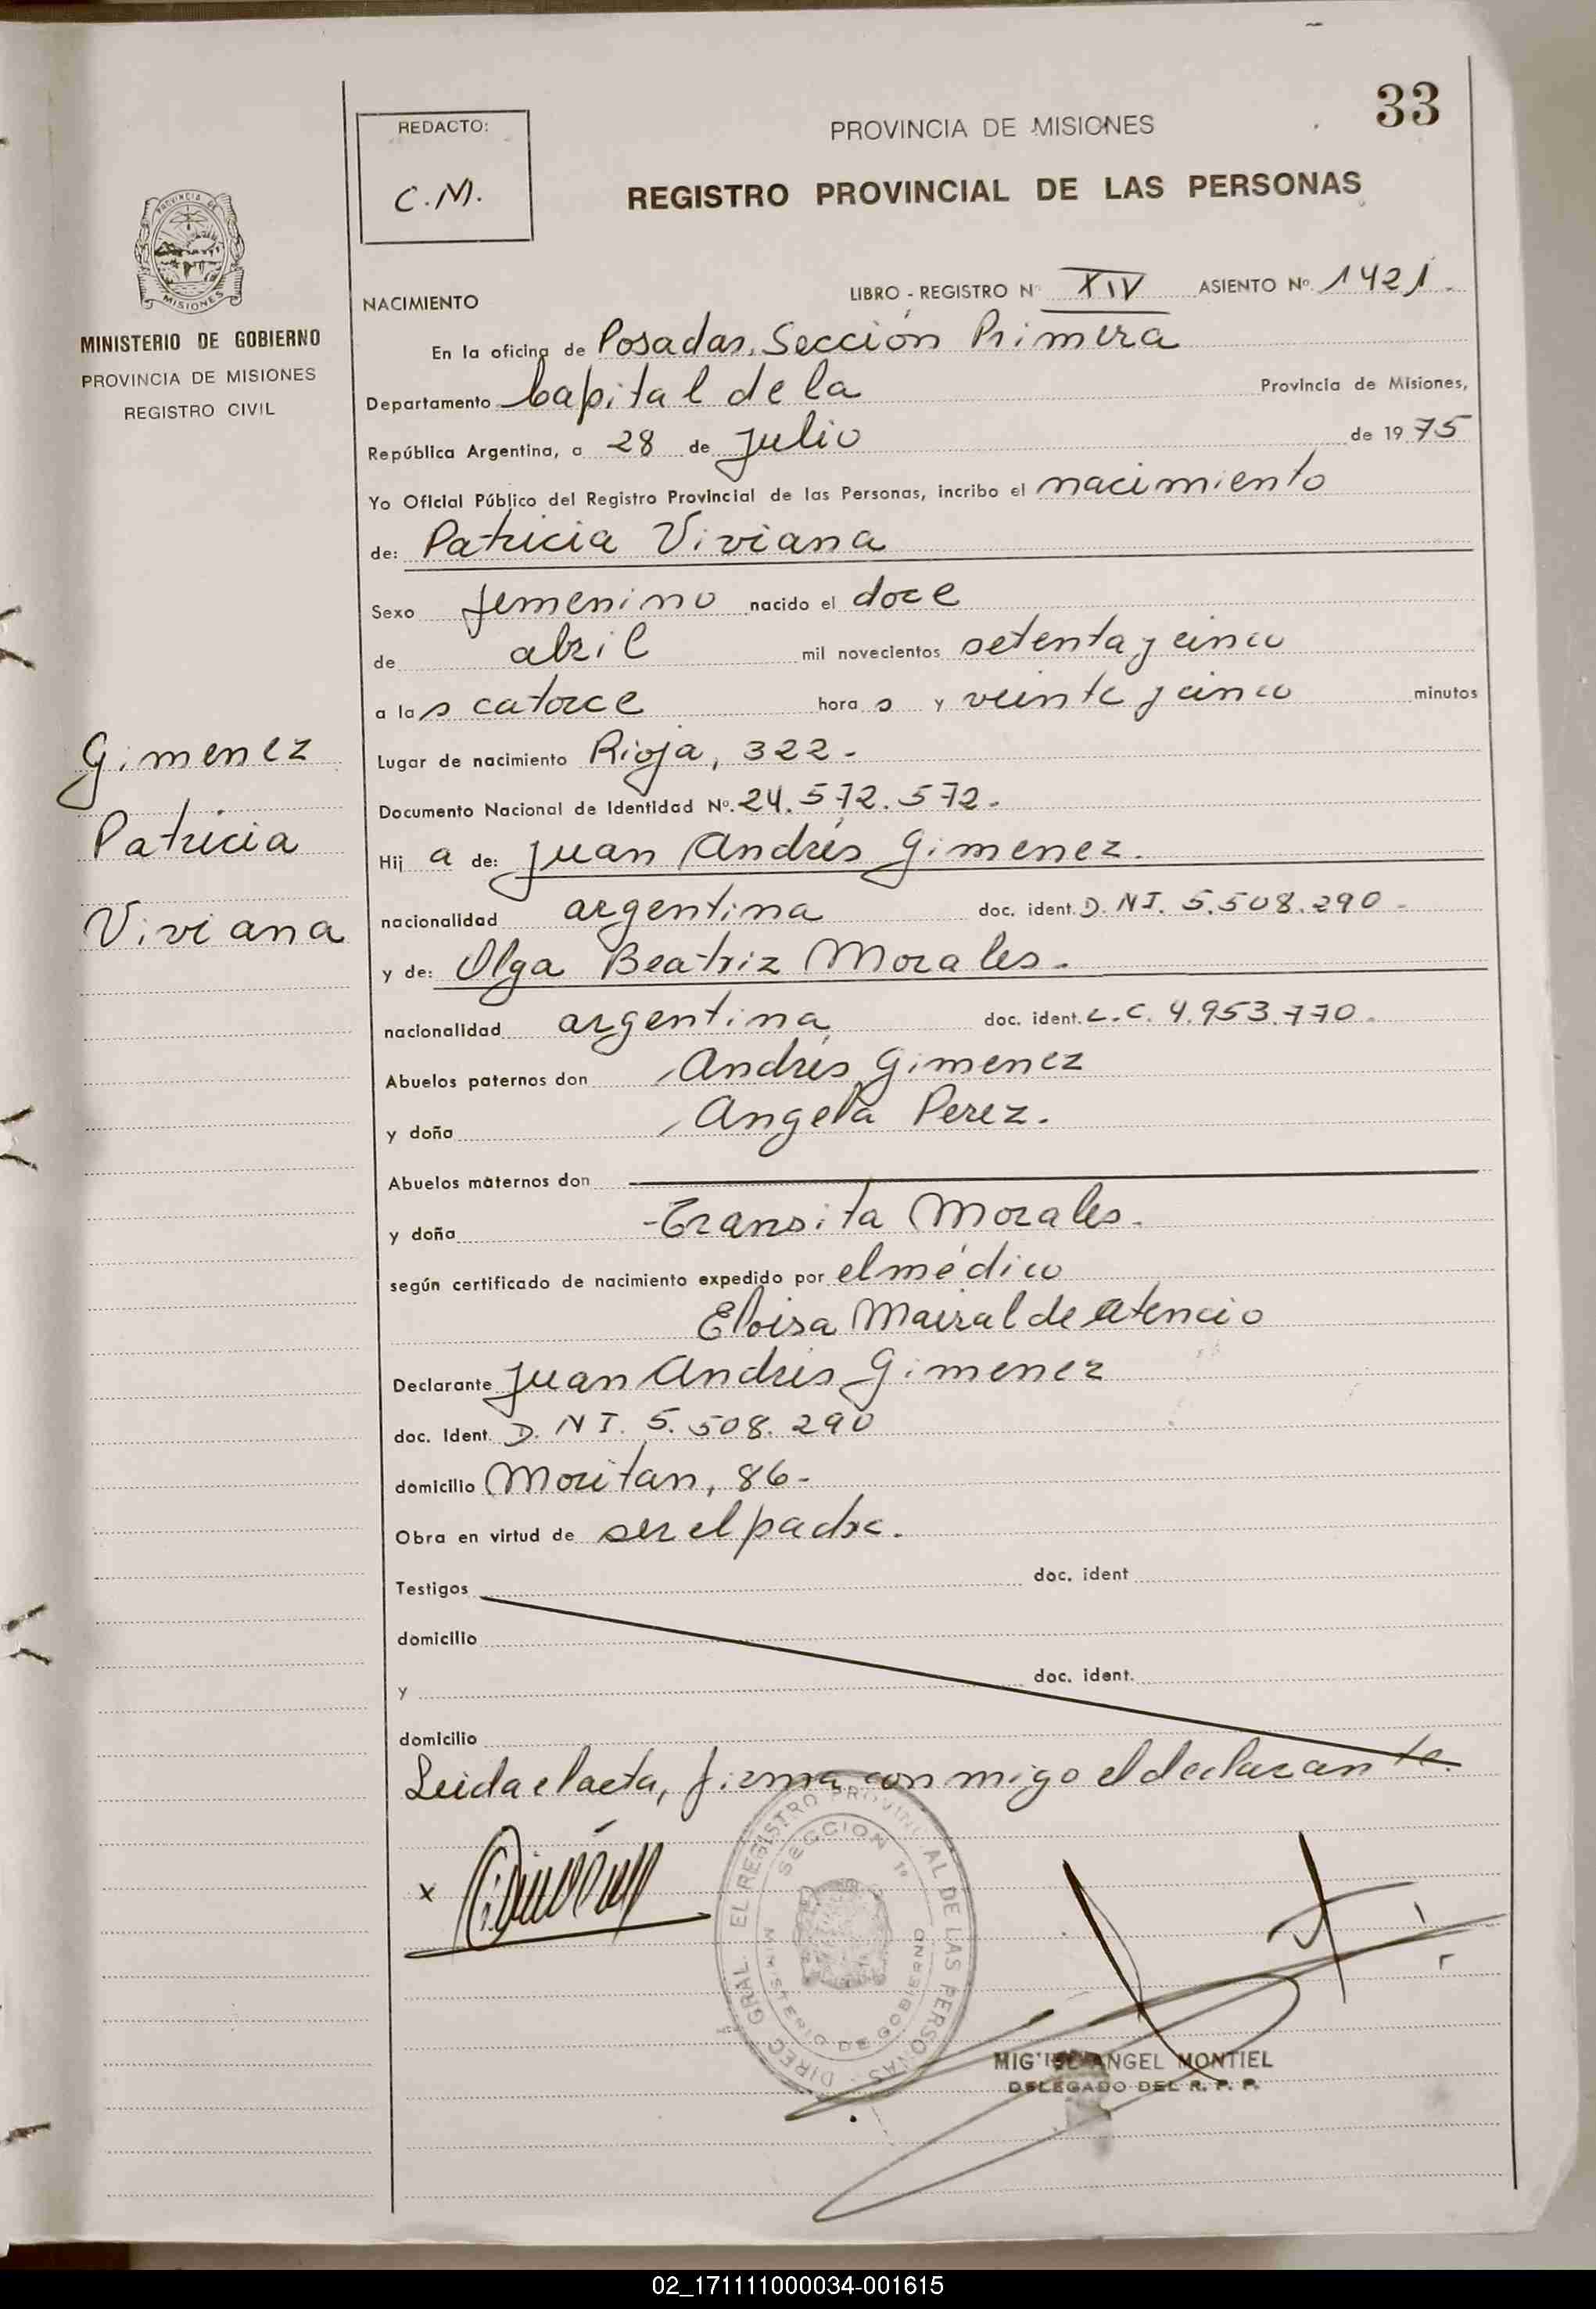 33
REDACTO:
C.M.
PROVINCIA DE MISIONES
REGISTRO PROVINCIAL DE LAS PERSONAS
PROVINCIA DE
MISIONES
MINISTERIO DE GOBIERNO
PROVINCIA DE MISIONES
REGISTRO CIVIL
NACIMIENTO LIBRO - REGISTRO Nº XIV ASIENTO Nº 1421.
En la oficina de Posadas, Sección Primera
Departamento Capital de la Provincia de Misiones,
República Argentina, a 28 de Julio de 1975
Yo Oficial Público del Registro Provincial de las Personas, incribo el nacimiento
de: Patricia Viviana
Sexo femenino nacido el doce
de abril mil novecientos setenta y cinco
a las catorce horas y veinte y cinco minutos
Gimenez
Patricia
Viviana
Lugar de nacimiento Rioja, 322.-
Documento Nacional de Identidad Nº. 24.572.572.
Hija de: Juan Andrés Gimenez.
nacionalidad argentina doc. ident. D.NI. 5.508.290.-
y de: Olga Beatriz Morales.
nacionalidad argentina doc. ident. L.C. 4.953.770.-
Abuelos paternos don Andrés Gimenez
y doña Angela Perez.
Abuelos maternos don
y doña -Transita Morales.
según certificado de nacimiento expedido por el médico
Eloisa Mairal de Atencio
Declarante Juan Andrés Gimenez
doc. Ident. D.NI. 5.508.290
domicilio Moritan, 86.-
Obra en virtud de ser el padre.
Testigos doc. ident
domicilio
y doc. ident.
domicilio
Leida el acta, firma conmigo el declarante.
x
DIREC. GRAL. EL REGISTRO PROVINCIAL DE LAS PERSONAS
SECCION 1º
MINISTERIO DE GOBIERNO
MIGUEL ANGEL MONTIEL
DELEGADO DEL R. P. P.
02_171111000034-001615